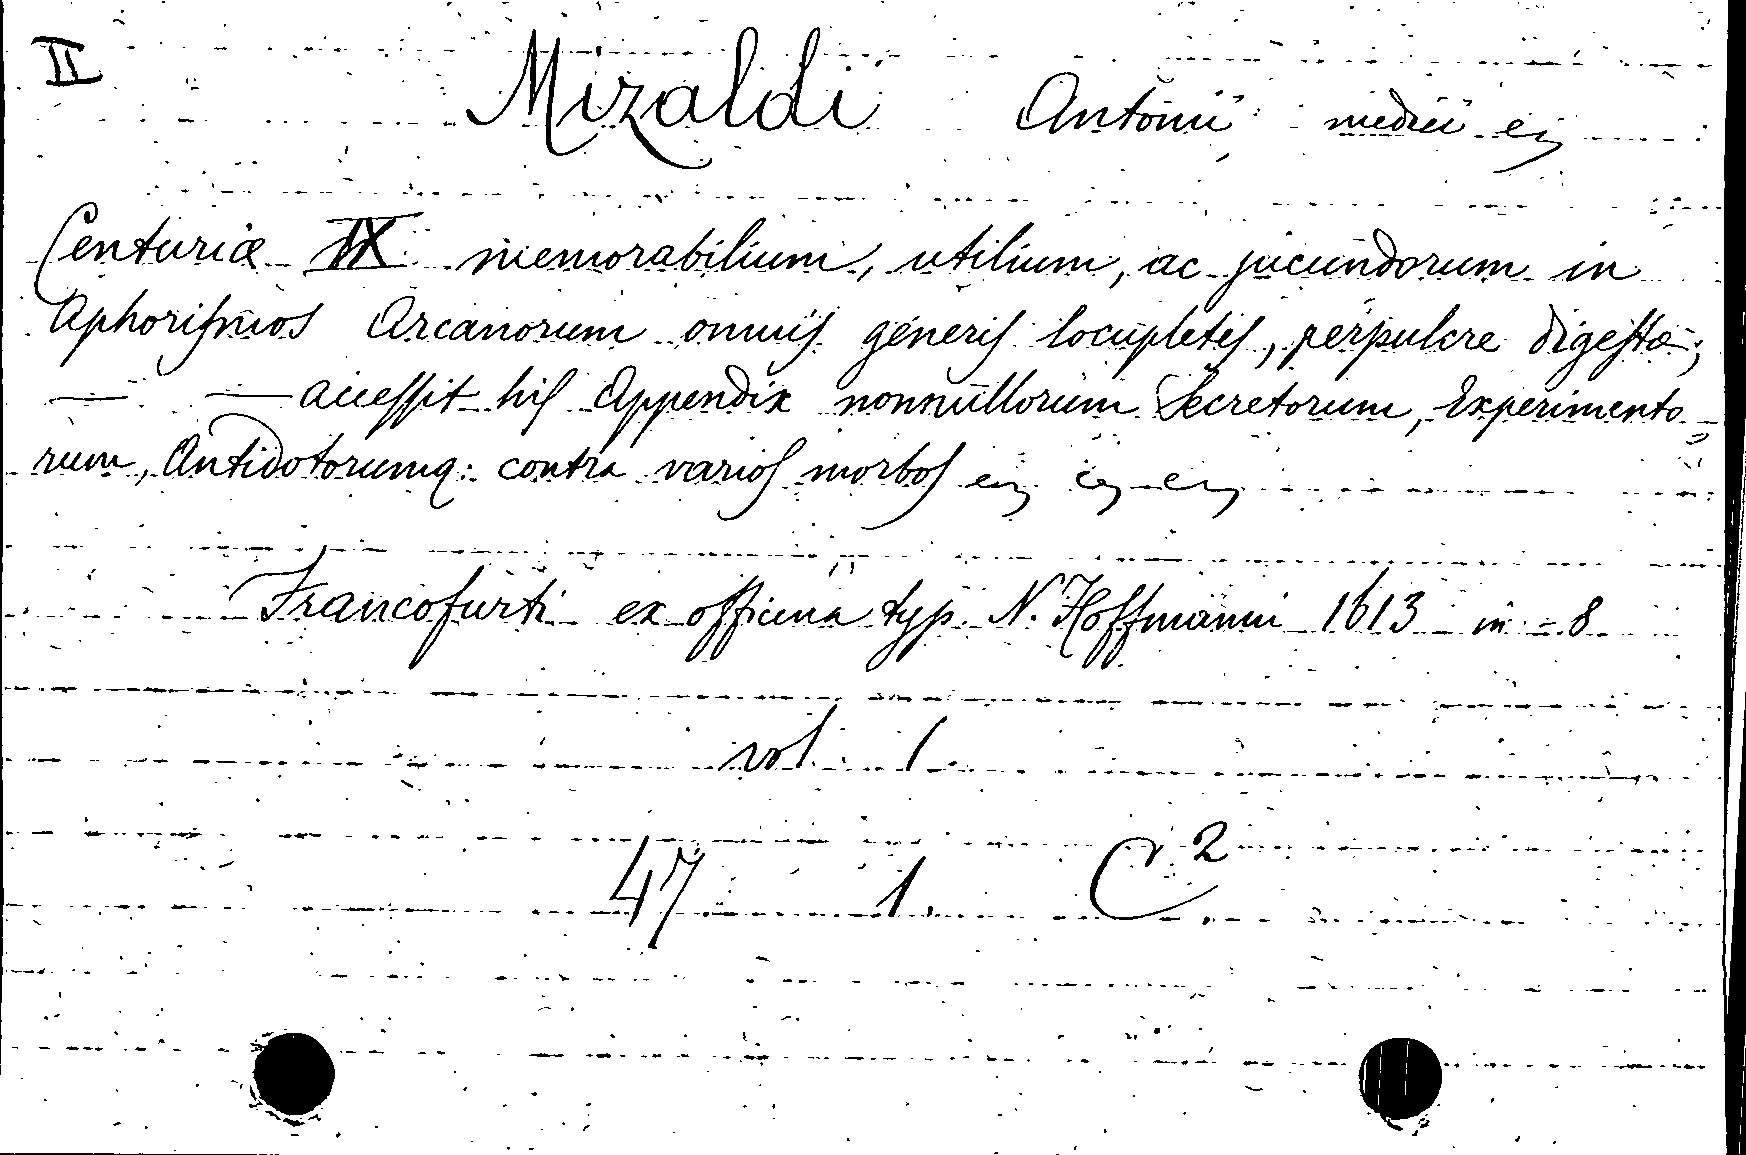 II
Mizaldi Antonii medici
Centuriæ IX memorabilium, utilium, ac jucundorum in
Aphorismos Arcanorum omnis generis locupletis, perpulcre digestæ;
— — accessit his Appendix nonnullorum Secretorum, Experimento
rum, Antidotorumq: contra varios morbos
Francofurti ex officina typ. N. Hoffmanni 1613 in-8
vol. 1.
47 1. C 2